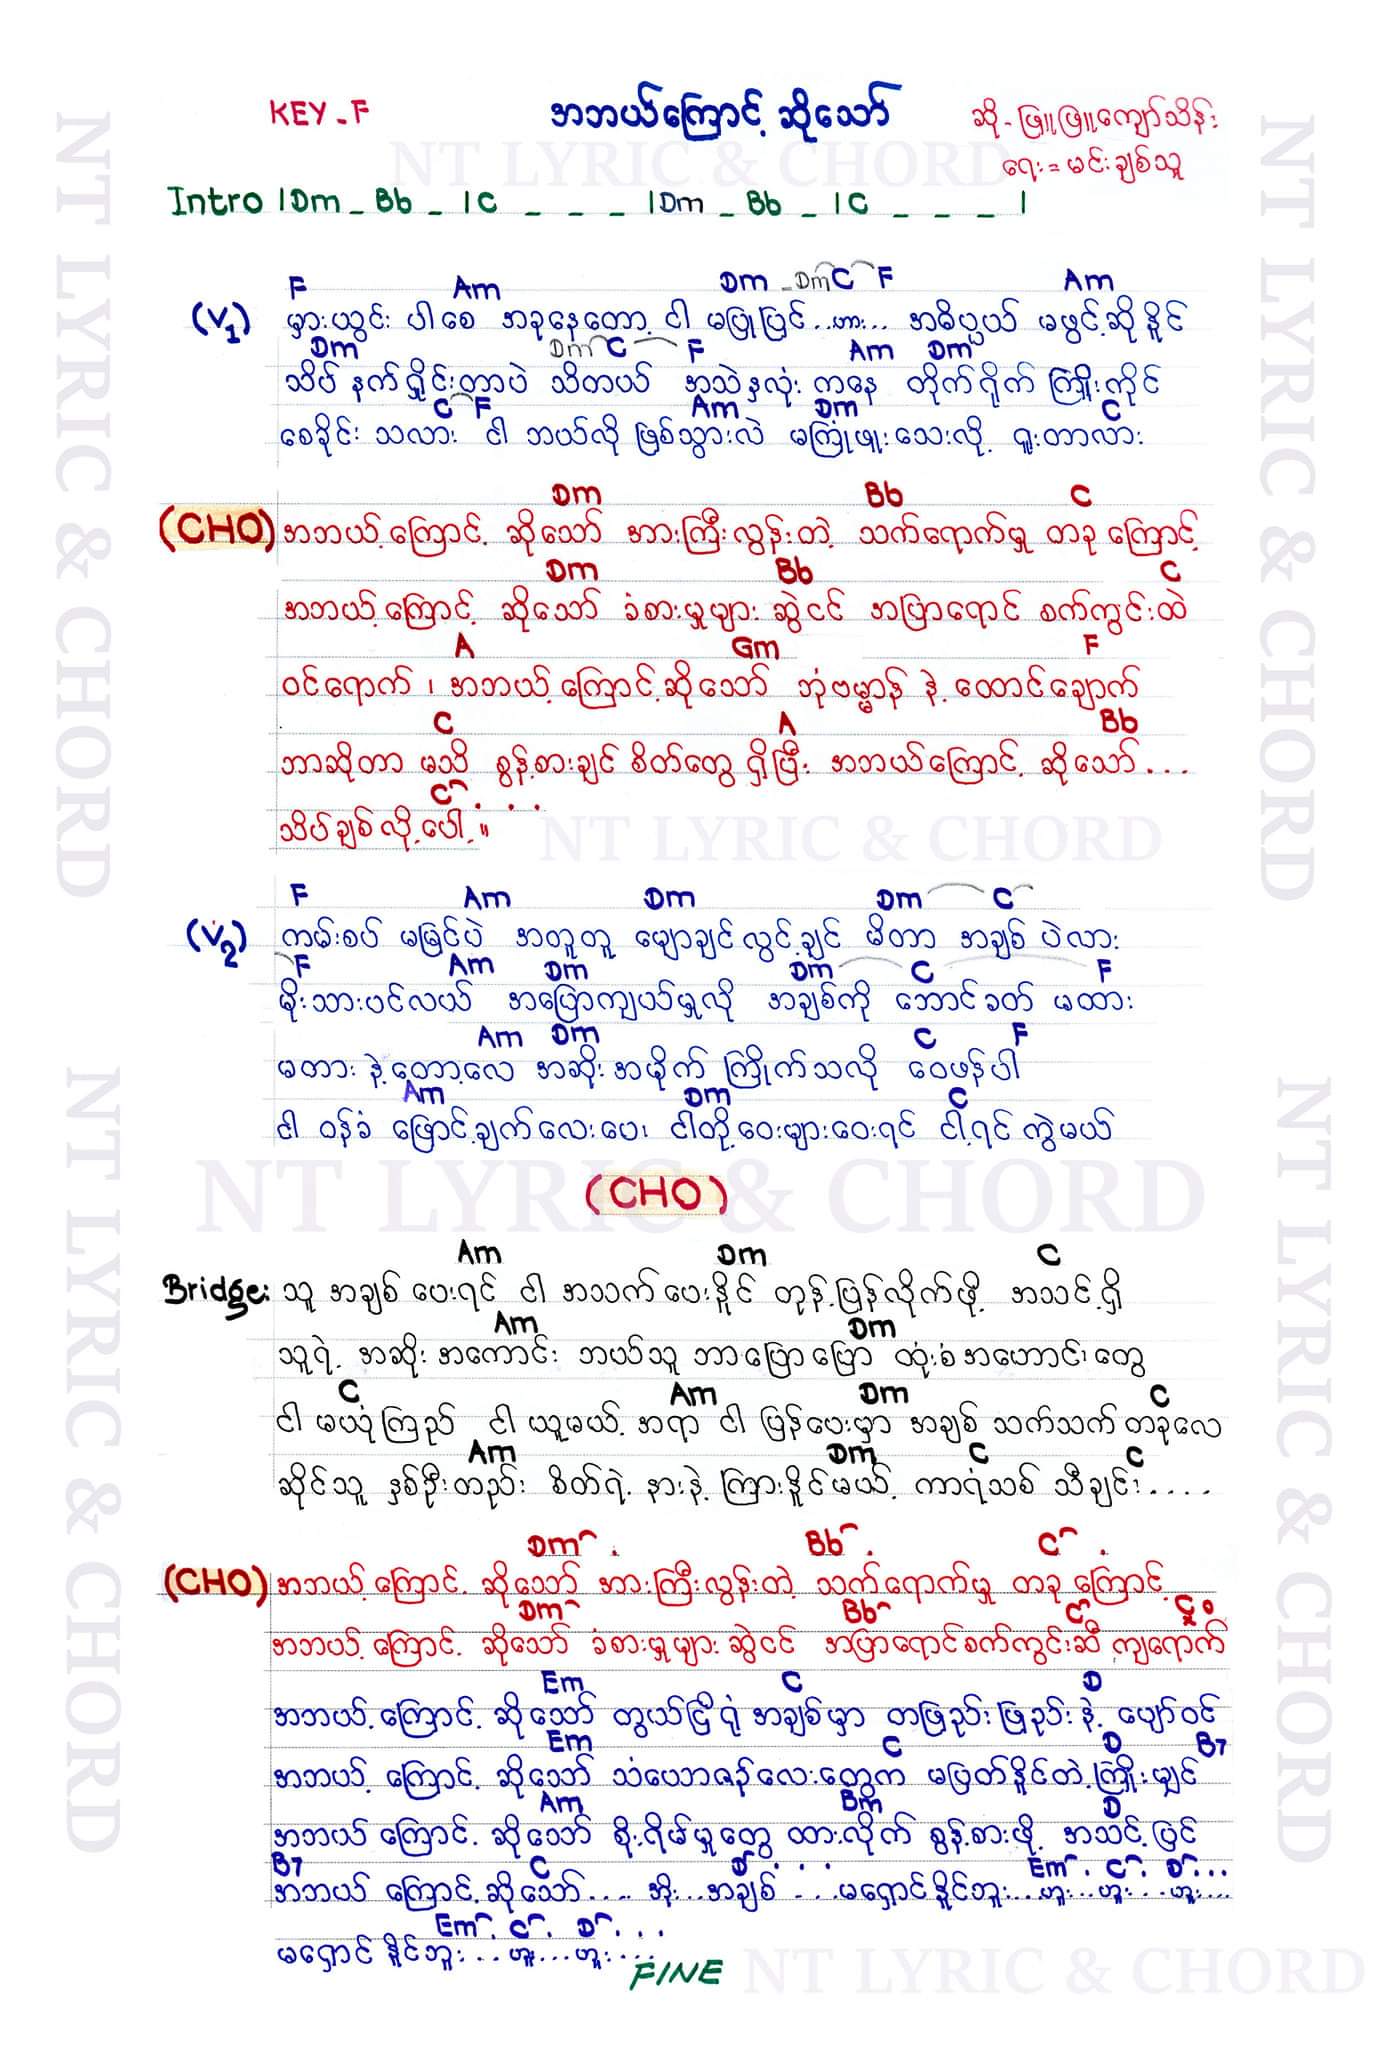 KEY - F
အဘယ်ကြောင့် ဆိုသော်
ဆို - ဖြူဖြူကျော်သိန်း
ရေး = မင်းချစ်သူ
NT LYRIC & CHORD
NT LYRIC & CHORD
NT LYRIC & CHORD
Intro | Dm _ Bb _ | C _ _ _ | Dm _ Bb _ | C _ _ _ |
F Am Dm - Dm C F Am
(V1) မှားယွင်း ပါစေ အခုနေတော့ ငါ မပြုပြင် ..ဟား... အဓိပ္ပယ် မဖွင့်ဆိုနိုင်
Dm Dm C F Am Dm
သိပ် နက်ရှိုင်းတာပဲ သိတယ် အသဲနှလုံး ကနေ တိုက်ရိုက် ကြိုးကိုင်
C F Am Dm C
စေခိုင်း သလား ငါ ဘယ်လို ဖြစ်သွားလဲ မကြုံဖူးသေးလို့ ရူးတာလား
Dm Bb C
(CHO) အဘယ့်ကြောင့် ဆိုသော် အားကြီးလွန်းတဲ့ သက်ရောက်မှု တခုကြောင့်
Dm Bb C
အဘယ့်ကြောင့် ဆိုသော် ခံစားမှုများ ဆွဲငင် အပြာရောင် စက်ကွင်းထဲ
A Gm F
ဝင်ရောက် ၊ အဘယ့်ကြောင့်ဆိုသော် ဘုံဗိမ္မာန် နဲ့ ထောင်ချောက်
C A Bb
ဘာဆိုတာ မသိ စွန့်စားချင် စိတ်တွေ ရှိပြီး အဘယ်ကြောင့် ဆိုသော် ...
C . . .
သိပ်ချစ်လို့ပေါ့ ။
NT LYRIC & CHORD
F Am Dm Dm C
(V2) ကမ်းစပ် မမြင်ပဲ အတူတူ မျောချင်လွင့်ချင် မိတာ အချစ် ပဲလား
F Am Dm Dm C F
မိုးသားပင်လယ် အပြောကျယ်မှုလို အချစ်ကို ဘောင်ခတ် မထား
Am Dm C F
မတား နဲ့တော့လေ အဆိုးအမိုက် ကြိုက်သလို ဝေဖန်ပါ
Am Dm C
ငါ ဝန်ခံ ဖြောင့်ချက်လေးပေး ငါတို့ဝေးများဝေးရင် ငါ့ရင် ကွဲမယ်
NT LYRIC & CHORD
(CHO)
Am Dm C
Bridge: သူ အချစ်ပေးရင် ငါ အသက်ပေးနိုင် တုန့်ပြန်လိုက်ဖို့ အသင့်ရှိ
Am Dm
သူ့ရဲ့ အဆိုးအကောင်း ဘယ်သူ ဘာပြောပြော ထုံးစံအဟောင်းတွေ
C Am Dm C
ငါ မယုံကြည် ငါ ယူမယ့် အရာ ငါ ပြန်ပေးမှာ အချစ် သက်သက် တခုလေ
Am Dm C C
ဆိုင်သူ နှစ်ဦးတည်း စိတ်ရဲ့ နားနဲ့ ကြားနိုင်မယ့် ကာရံသစ် သီချင်း....
Dm . Bb . C .
(CHO) အဘယ့်ကြောင့် ဆိုသော် အားကြီးလွန်းတဲ့ သက်ရောက်မှု တခုကြောင့်
Dm Bb C
အဘယ့်ကြောင့် ဆိုသော် ခံစားမှုများ ဆွဲငင် အပြာရောင်စက်ကွင်းဆီ ကျရောက်
Em C D
အဘယ့်ကြောင့် ဆိုသော် တွယ်ငြိရုံ အချစ်မှာ တဖြည်းဖြည်းနဲ့ ပျော်ဝင်
Em C D B7
အဘယ့်ကြောင့် ဆိုသော် သံယောဇဉ်လေးတွေက မပြတ်နိုင်တဲ့ကြိုးမျှင်
Am Bm D
အဘယ်ကြောင့် ဆိုသော် စိုးရိမ်မှုတွေ ထားလိုက် စွန့်စားဖို့ အသင့်ပြင်
B7 C D . . . Em . C . D ...
အဘယ်ကြောင့်ဆိုသော် .... အိုး...အချစ် ....မရှောင်နိုင်ဘူး...ဟူး...ဟူး...ဟူး...
Em . C . D . . .
မရှောင်နိုင်ဘူး...ဟူး...ဟူး....
FINE
NT LYRIC & CHORD
NT LYRIC & CHORD
NT LYRIC & CHORD